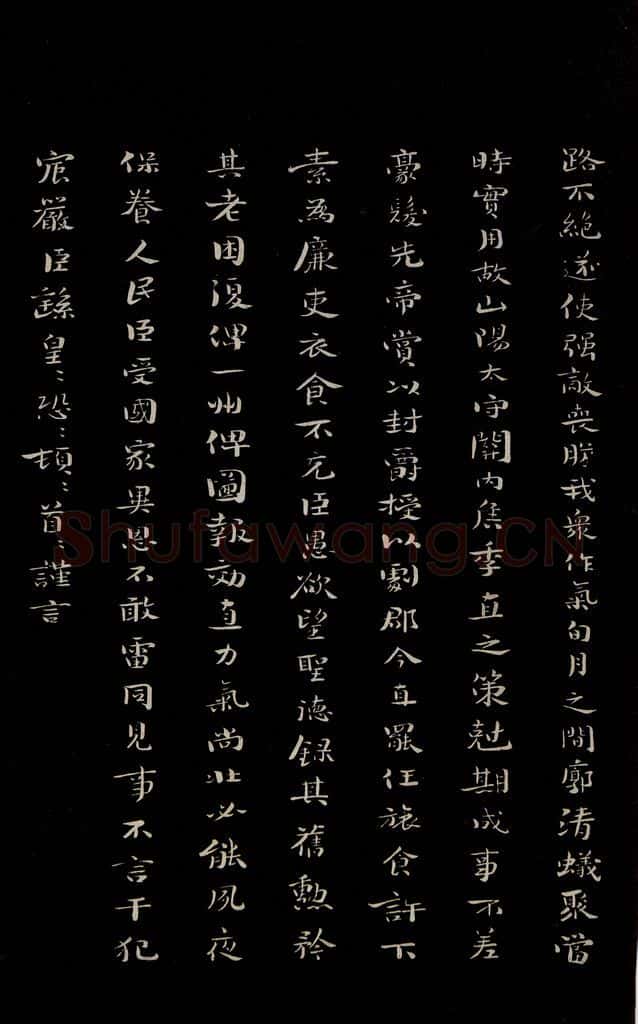 路不絶遂使强敵喪膽我衆作氣旬月之間廓清蟻聚當
時實用故山陽太守關内侯季直之策尅期成事不差
豪髮先帝賞以封爵授以劇郡今直罷任旅食許下
素為廉吏衣食不充臣愚欲望聖德録其舊勲矜
其老困復俾一州俾圖報効直力氣尚壯必能夙夜
保養人民臣受國家異恩不敢雷同見事不言干犯
宸嚴臣繇皇〻恐〻頓〻首〻謹言
Shufawang.CN